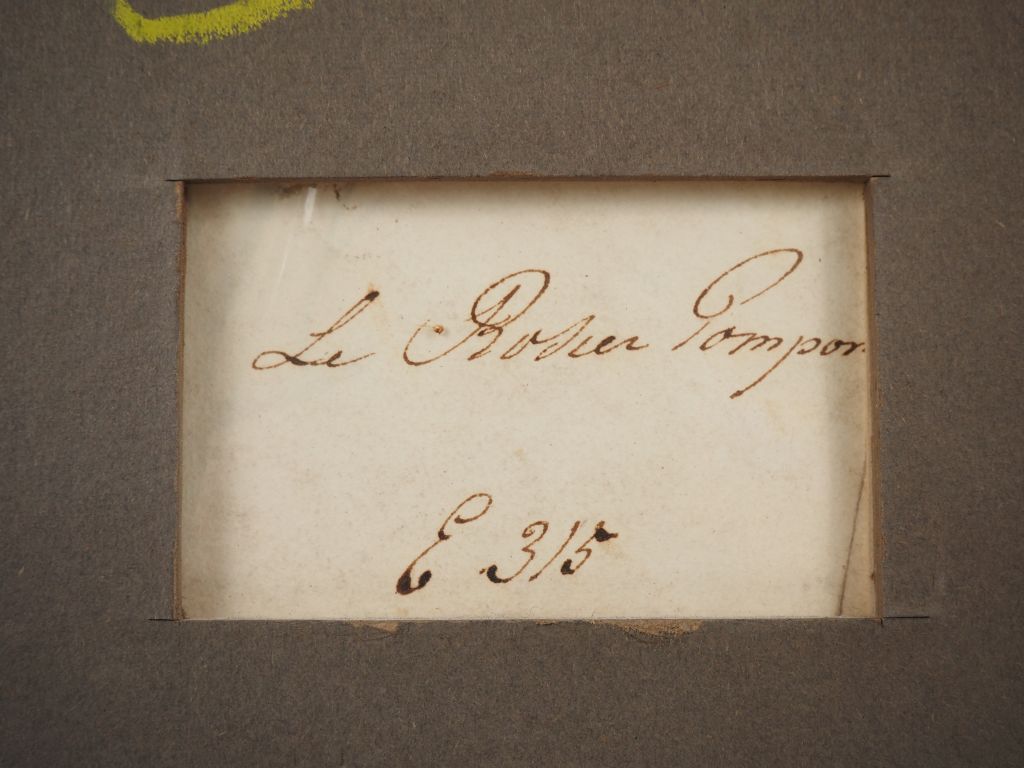 Le Rosier Pompon
E 315